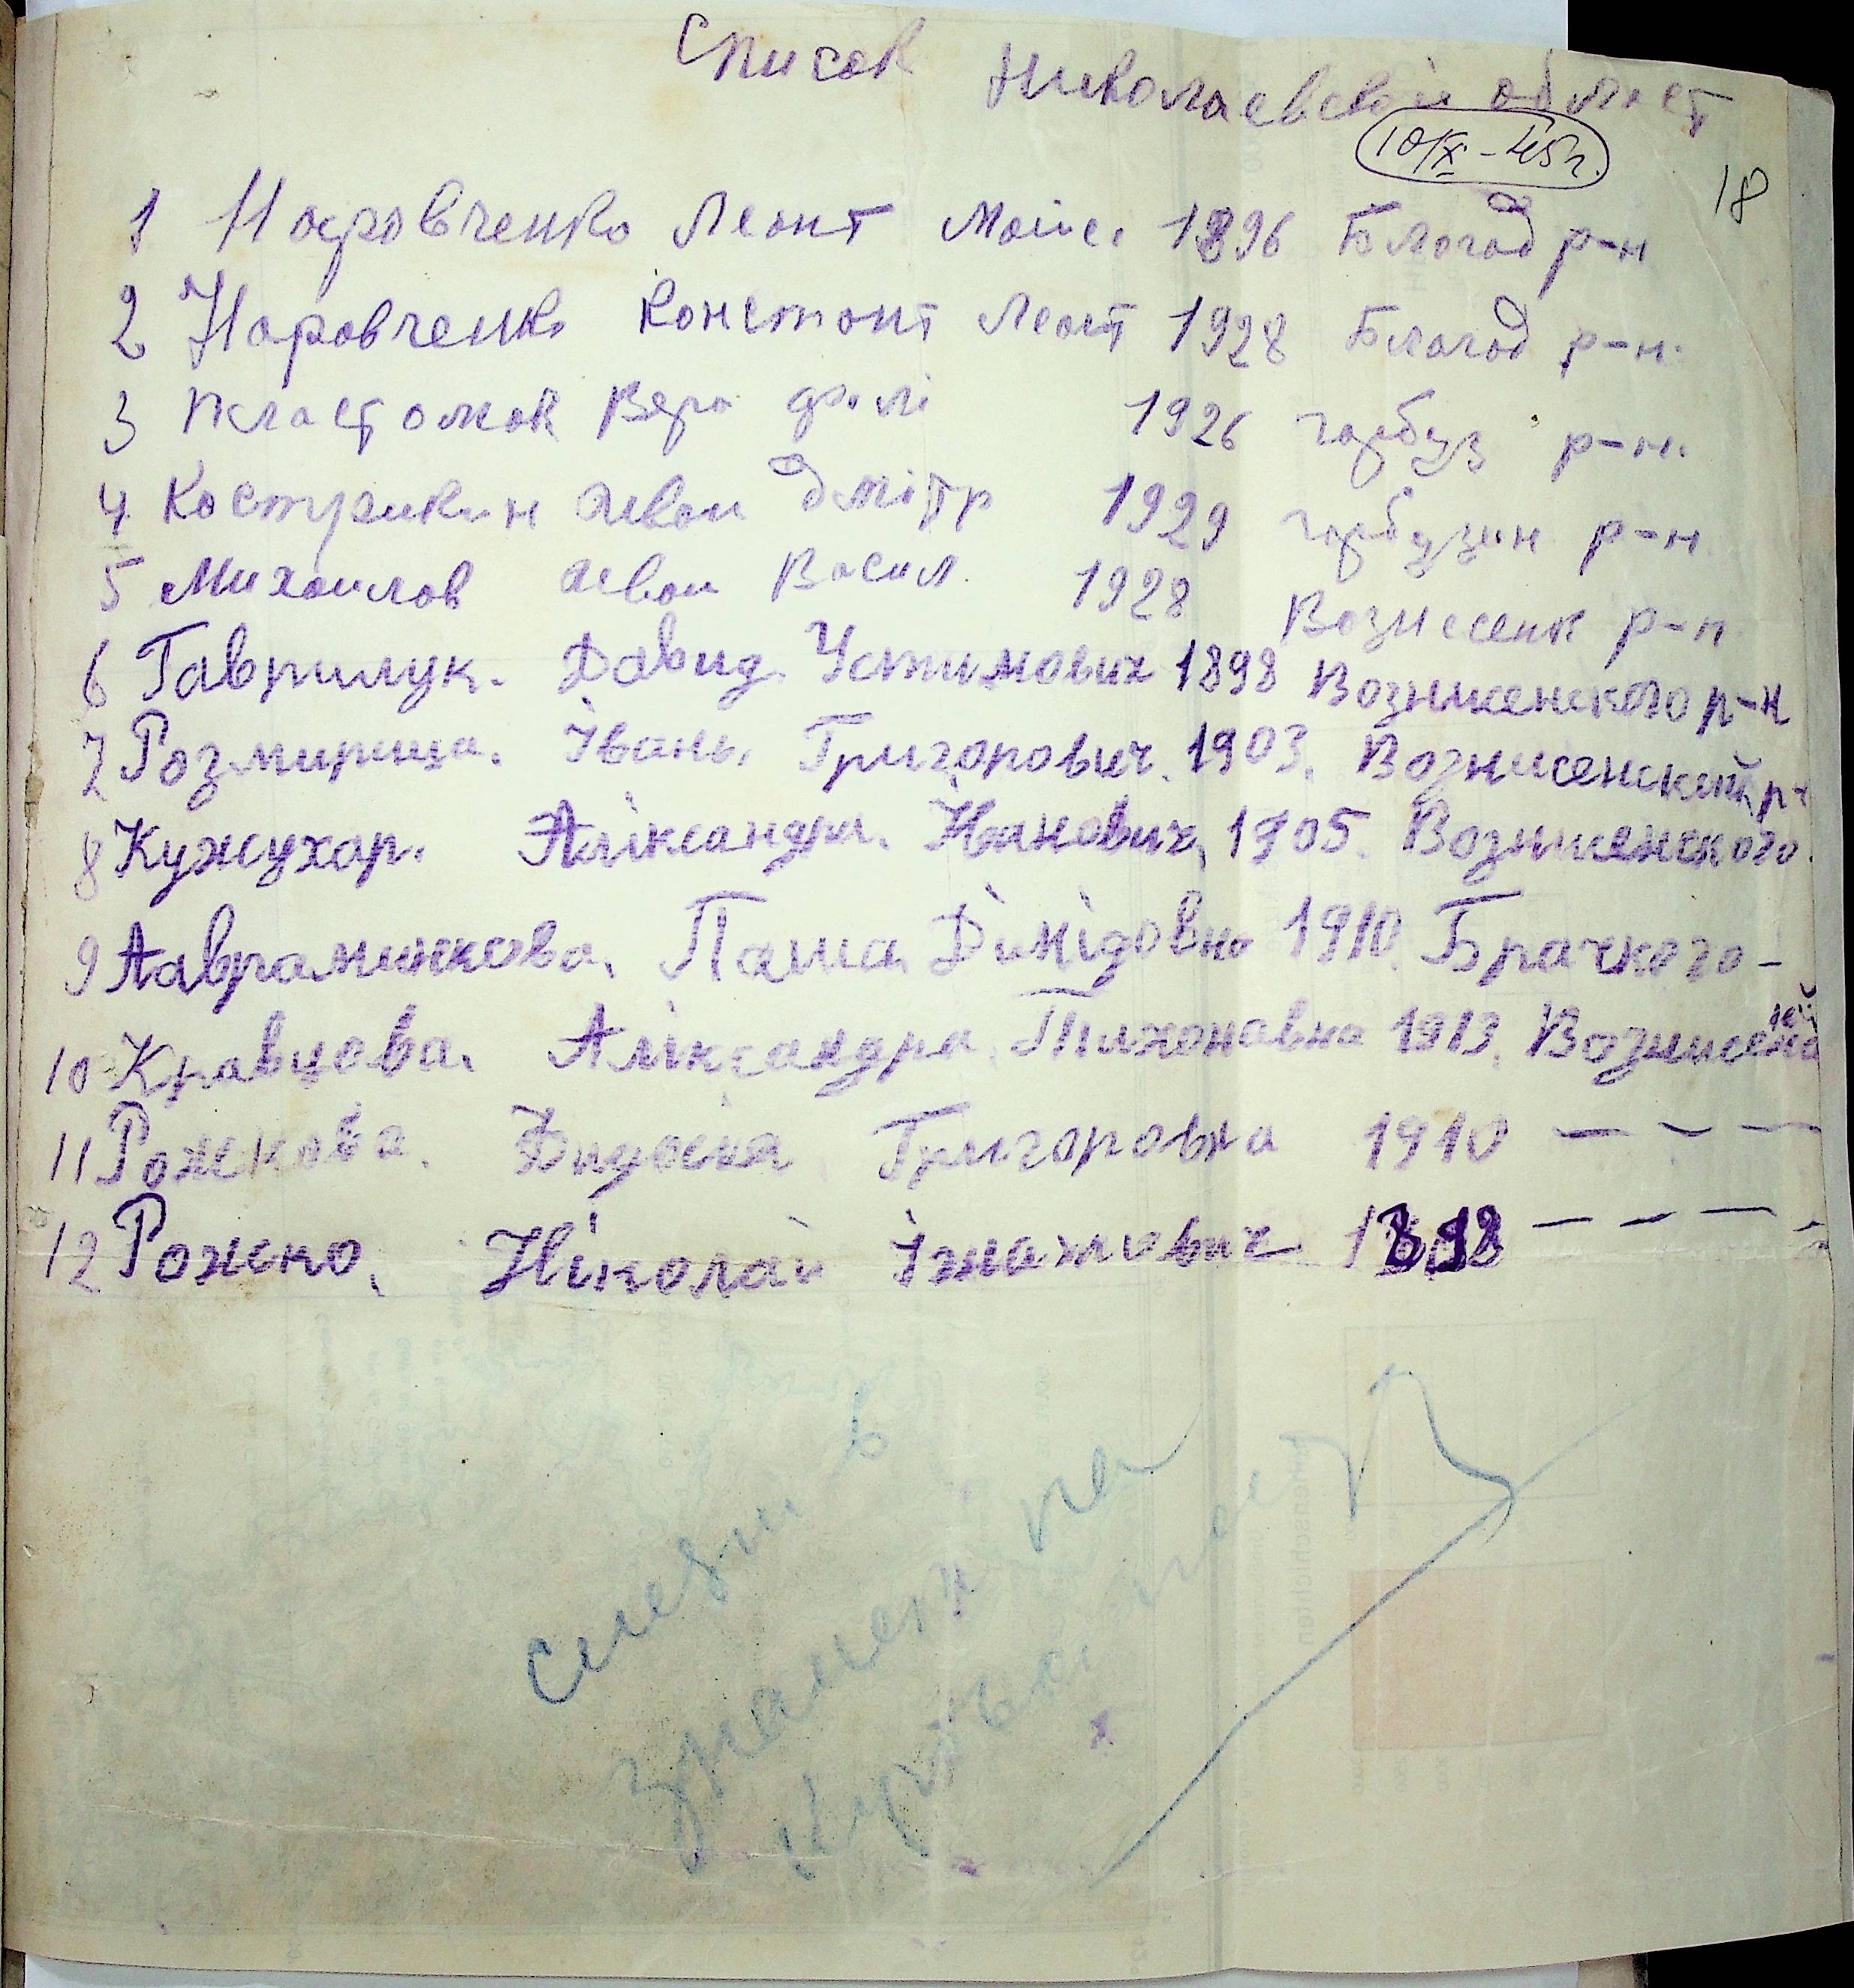 Список Николаевской област
10/IX-45г.
18
1 Наровченко Леонт Мойс. 1896 Благод р-н
2 Наровченко Констонт Леонт 1928 Благод р-н.
3 Вера 1926 горбуз р-н.
4 Кострикин иван дмітр 1929 горбузин р-н
5 Михоилов иван Васил. 1928 Вознесенк р-н
6 Гаврилук. Давид. Устимович 1898 Вознисенского р-н
7 Розмирица. Iвань. Григорович. 1903. Вознисенский р-
8 Кужухар. Аліксандра. Иванович, 1905. Вознисенского.
9 Паша 1910. Брачкого-
10 Кравцова. Аліксандра. Тихоновна 1913.
11 Рожкова. Григоровна 1910 - - -
12 Рожко. Ніколай 1898 - - - -